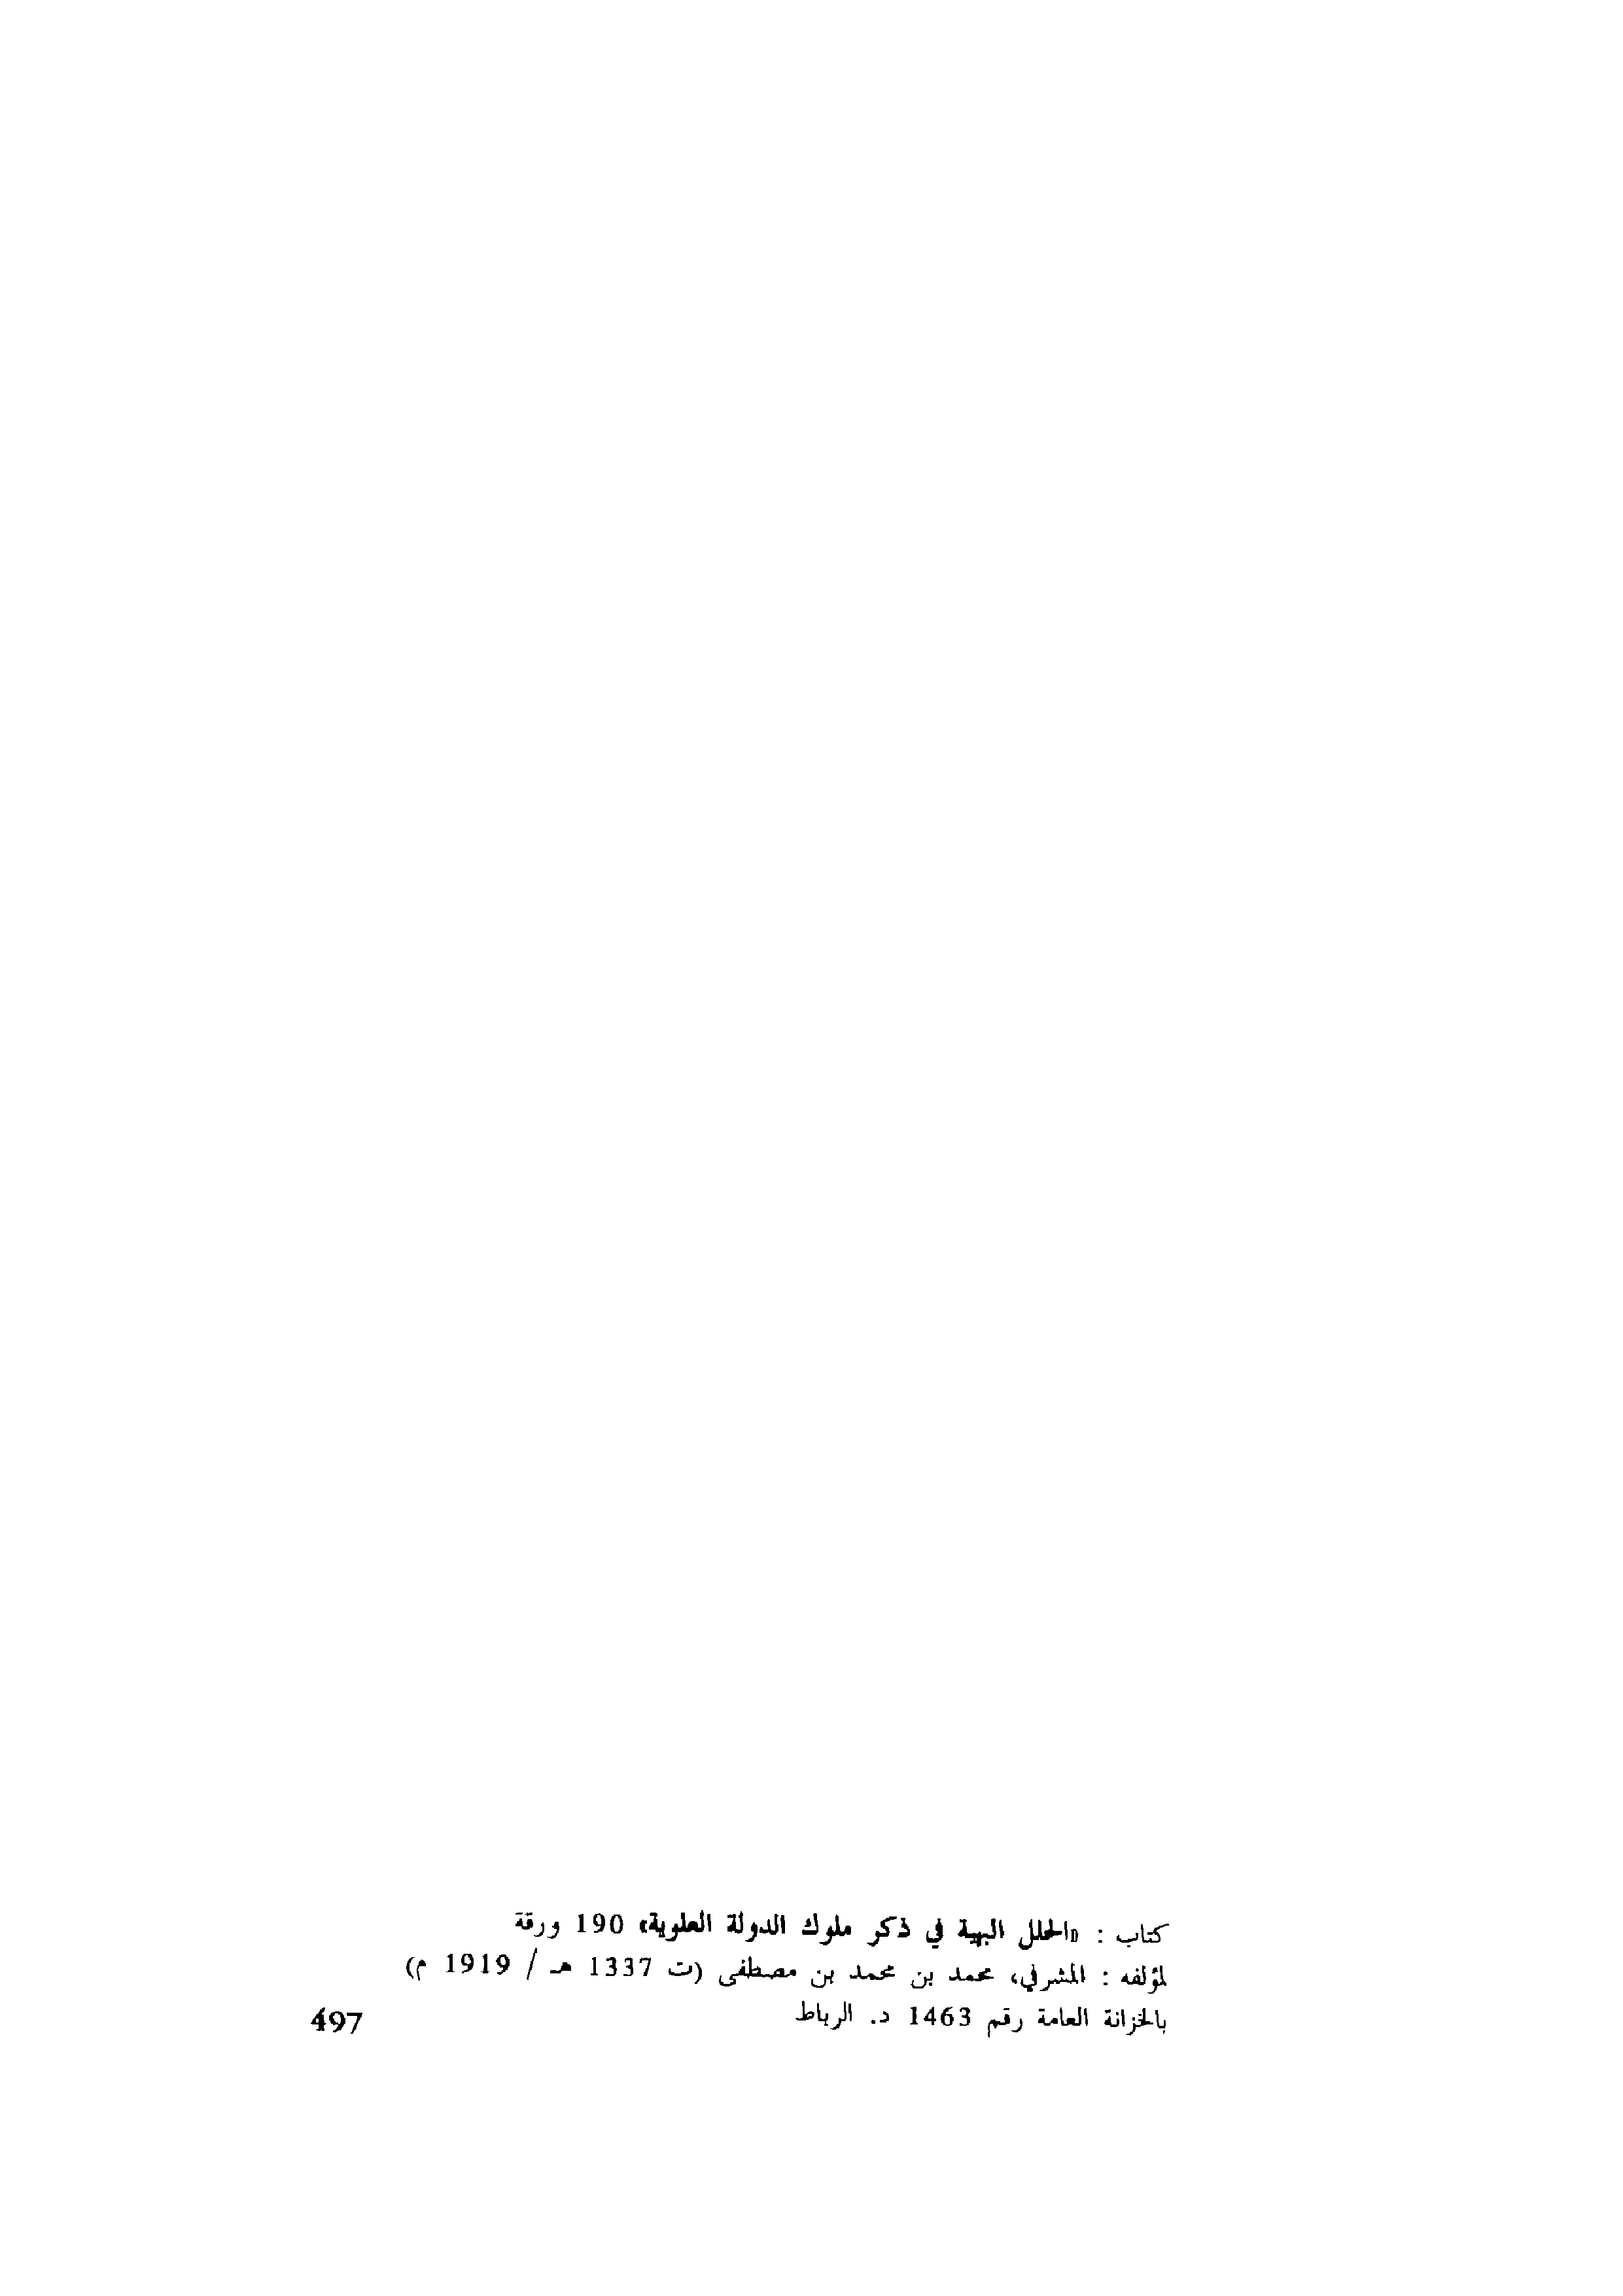 كتاب : «الحلل البهية في ذكر ملوك الدولة العلوية» 190 ورقة
لمؤلفه : المشرفي، محمد بن محمد بن مصطفى (ت 1337 هـ / 1919 م)
بالخزانة العامة رقم 1463 د. الرباط
497